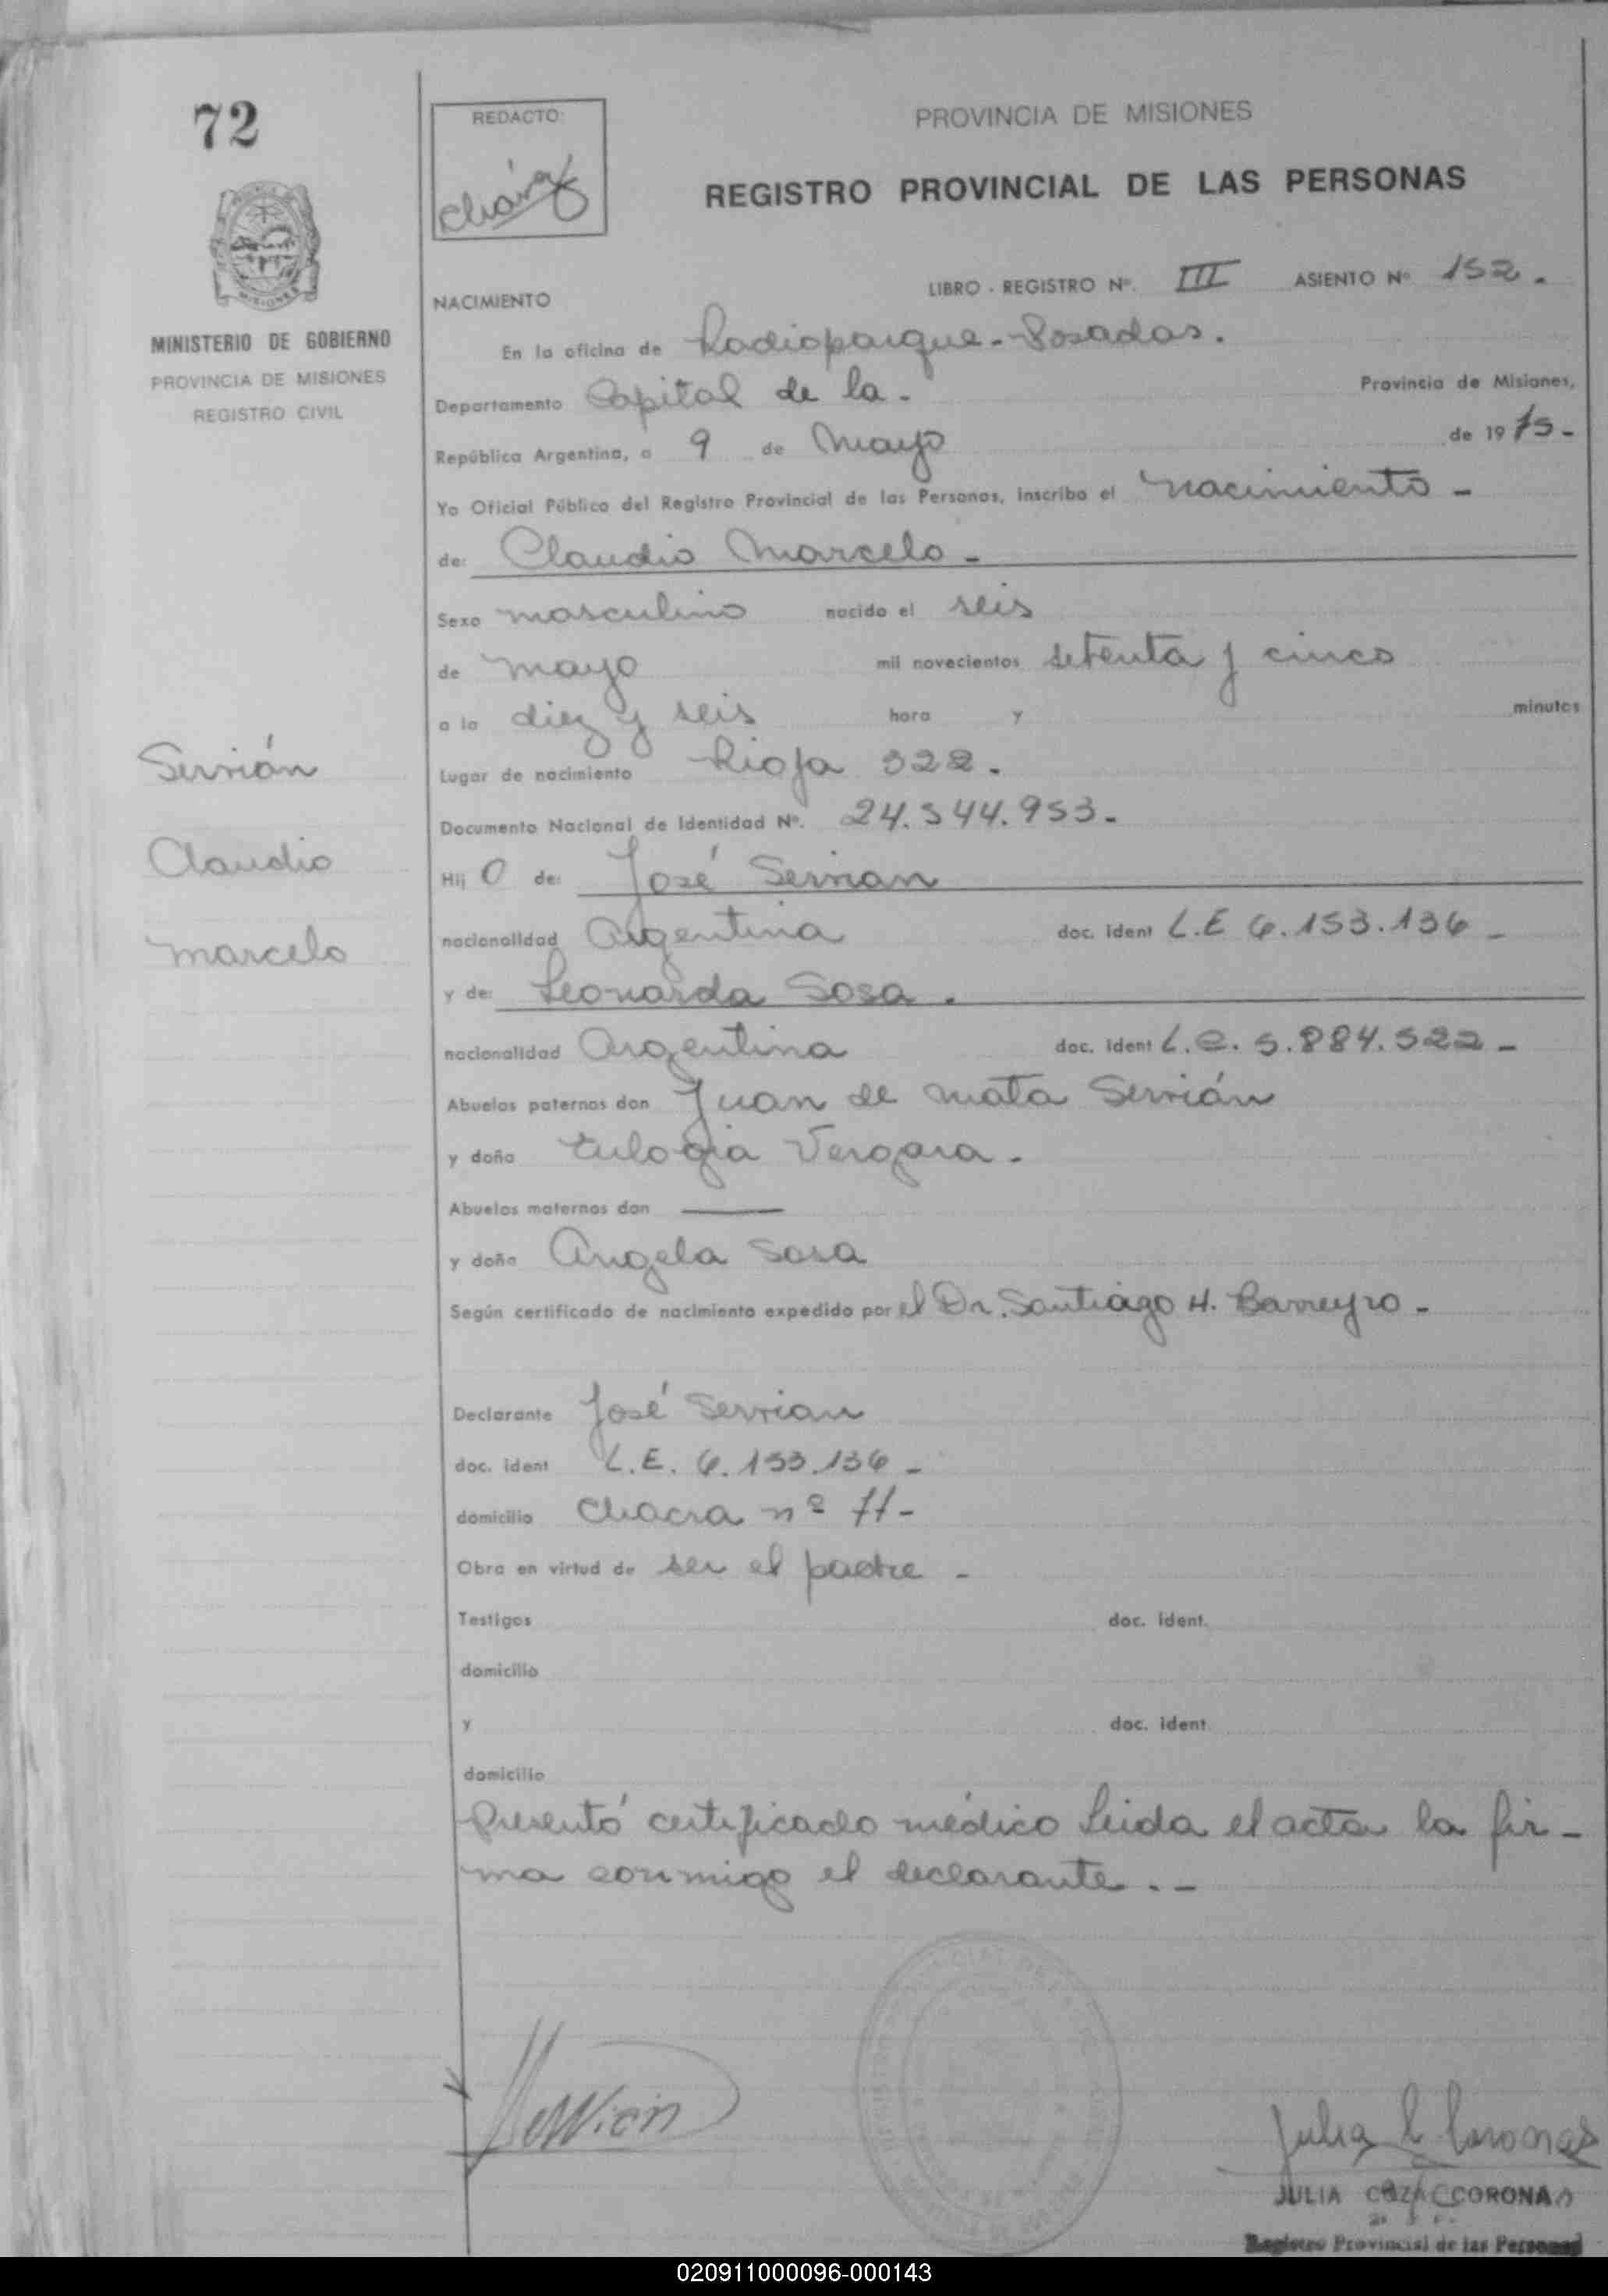 72
REDACTO:
Cháraz
PROVINCIA DE MISIONES
REGISTRO PROVINCIAL DE LAS PERSONAS
LIBRO - REGISTRO Nº. III ASIENTO Nº 152.
NACIMIENTO
MISIONES
MINISTERIO DE GOBIERNO
PROVINCIA DE MISIONES
REGISTRO CIVIL
En la oficina de Radioparque - Posadas.
Departamento Capital de la - Provincia de Misiones,
República Argentina, a 9 de Mayo de 1975-
Yo Oficial Público del Registro Provincial de las Personas, inscribo el nacimiento -
de: Claudio Marcelo -
Sexo masculino nacido el seis
de mayo mil novecientos setenta y cinco
a la diez y seis hora y minutos
Lugar de nacimiento Rioja 322.
Documento Nacional de Identidad Nº. 24.544.953-
Hij O de: José Servian
nacionalidad Argentina doc. ident L.E 6.153.136-
y de: Leonarda Sosa.
nacionalidad Argentina doc. ident L.C. 5.884.522-
Abuelos paternos don Juan de Mata Servián
y doña Eulogia Vergara.
Abuelos maternos don ———
y doña Angela Sosa
Según certificado de nacimiento expedido por el Dr. Santiago H. Barreyro -
Servián
Claudio
Marcelo
Declarante José Servian
doc. ident L.E. 6.153.136-
domicilio Chacra nº 77-
Obra en virtud de ser el padre -
Testigos doc. ident.
domicilio
y doc. ident.
domicilio
Presentó certificado médico Leida el acta la fir-
ma conmigo el declarante.-
Servian
JULIA CORONA
Registro Provincial de las Personas
020911000096-000143